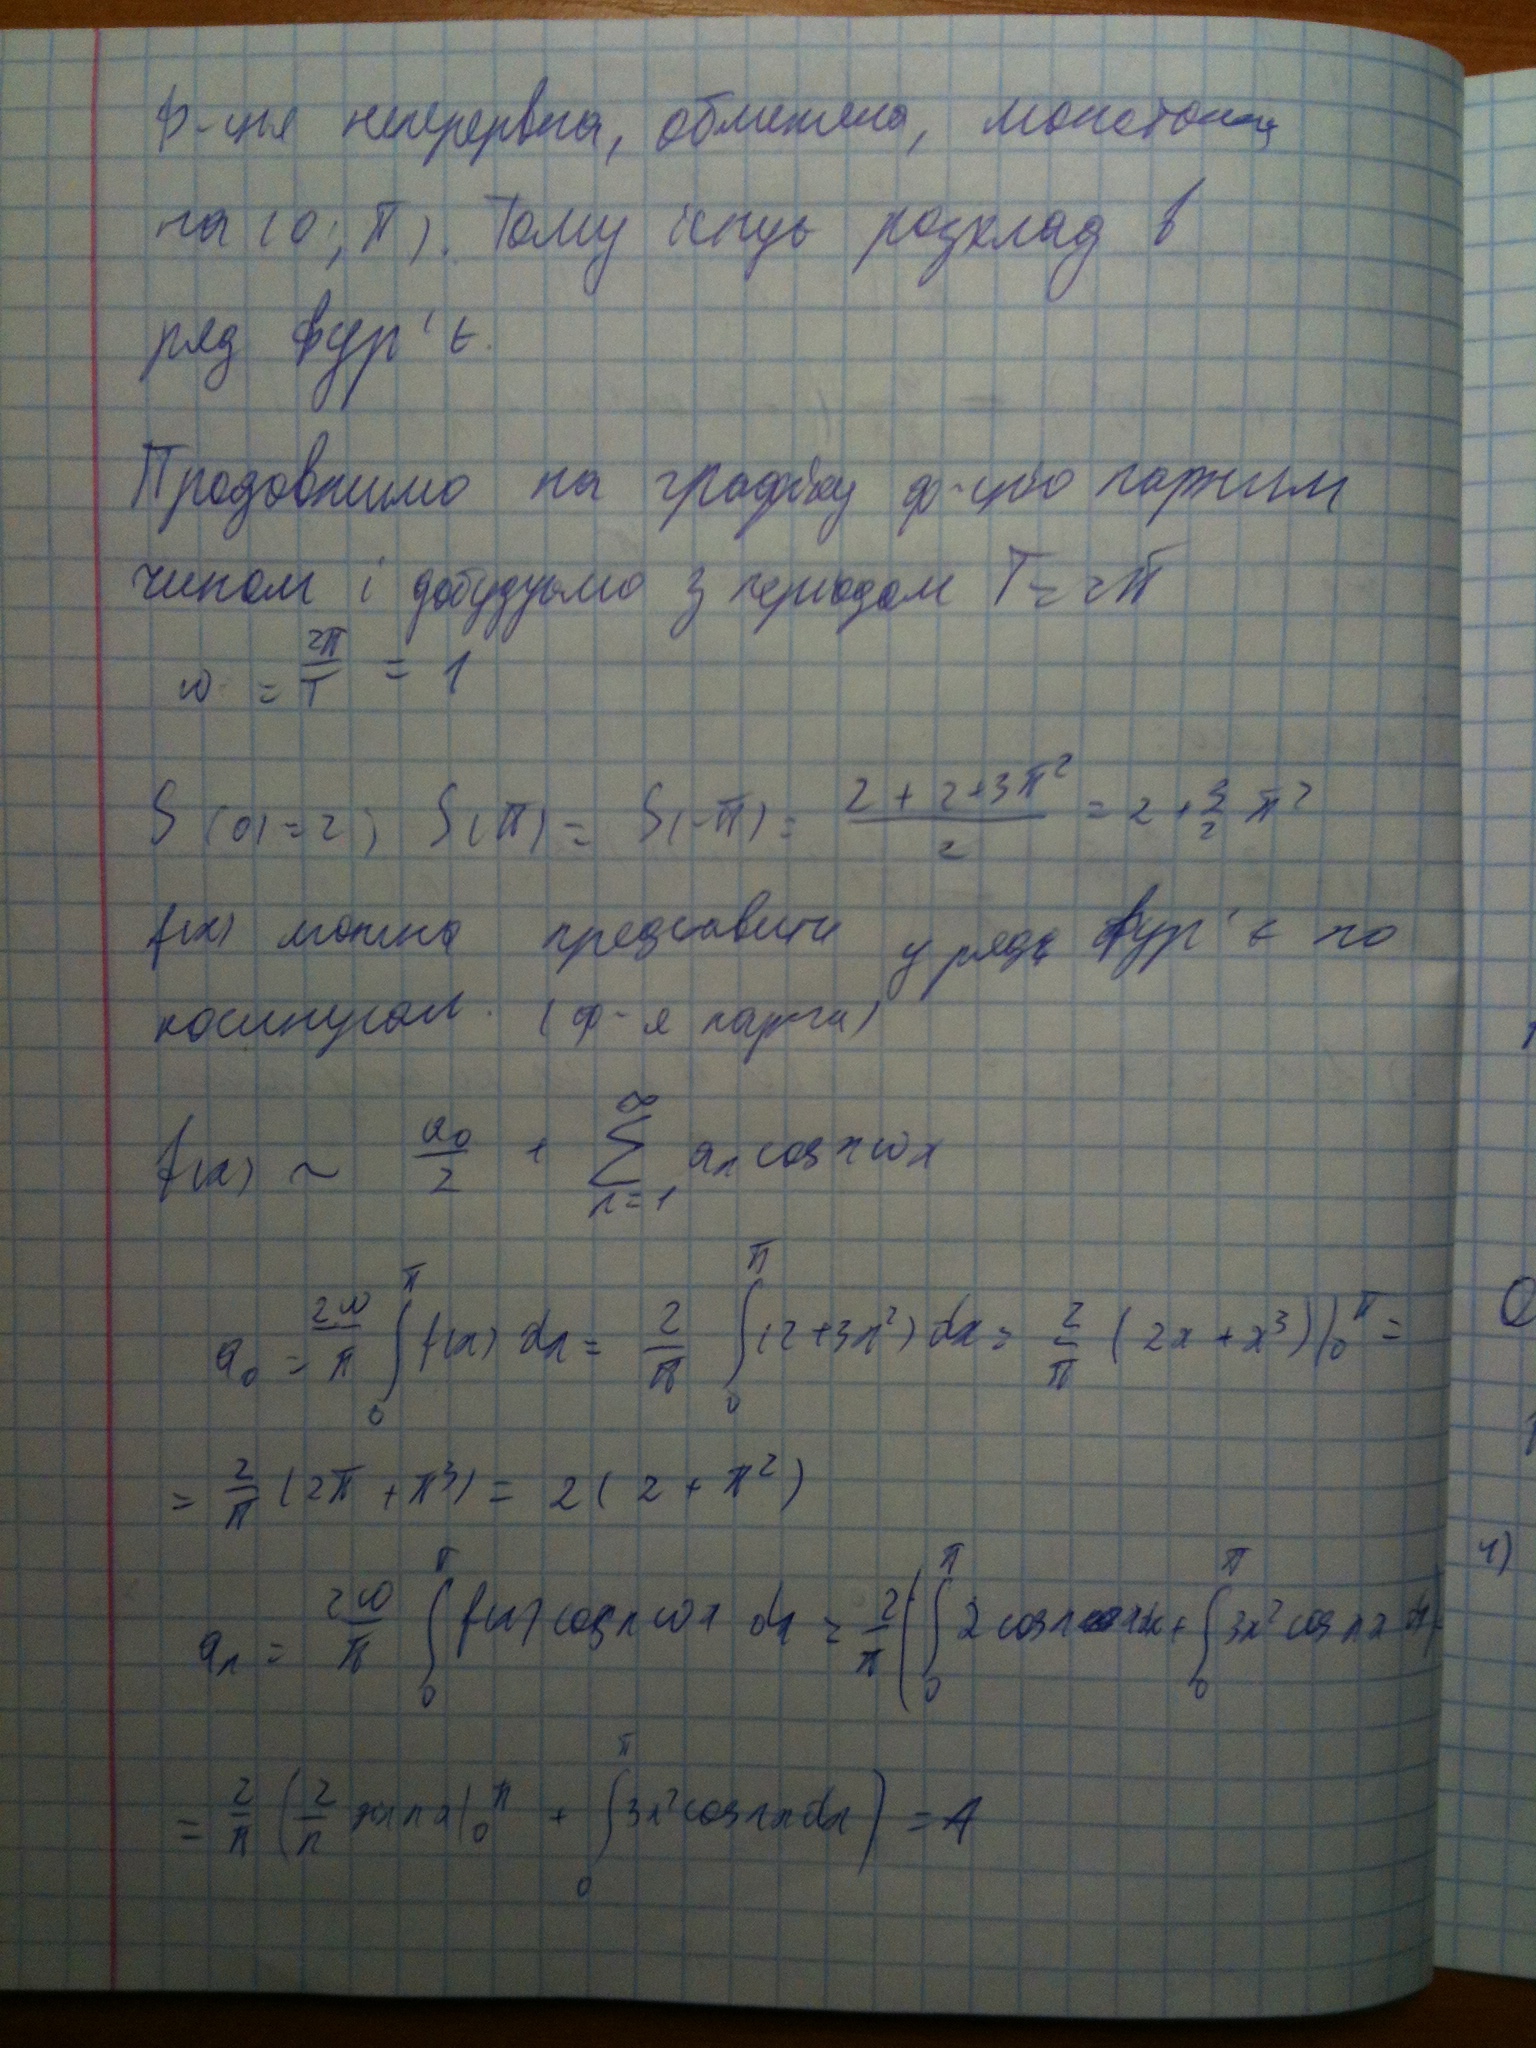 Ф-ція неперервна, обмежена, монотонна
на (0; π). Тому існує розклад в
ряд Фур'є.
Продовжимо на графіку ф-цію парним
чином і добудуємо з періодом T = 2π
ω = 2π/T = 1
S(0) = 2; S(π) = S(-π) = (2 + 2 + 3π²)/2 = 2 + 3/2 π²
f(x) можна представити у ряд Фур'є по
косинусам. (ф-я парна)
f(x) ~ a₀/2 + ∑_{n=1}^{∞} aₙ cos nωx
a₀ = 2ω/π ∫₀^π f(x) dx = 2/π ∫₀^π (2+3x²) dx = 2/π (2x + x³)|₀^π =
= 2/π (2π + π³) = 2(2 + π²)
aₙ = 2ω/π ∫₀^π f(x) cos nωx dx = 2/π (∫₀^π 2 cos nx dx + ∫₀^π 3x² cos nx dx
= 2/π (2/n sin nx|₀^π + ∫₀^π 3x² cos nx dx) = A
4)